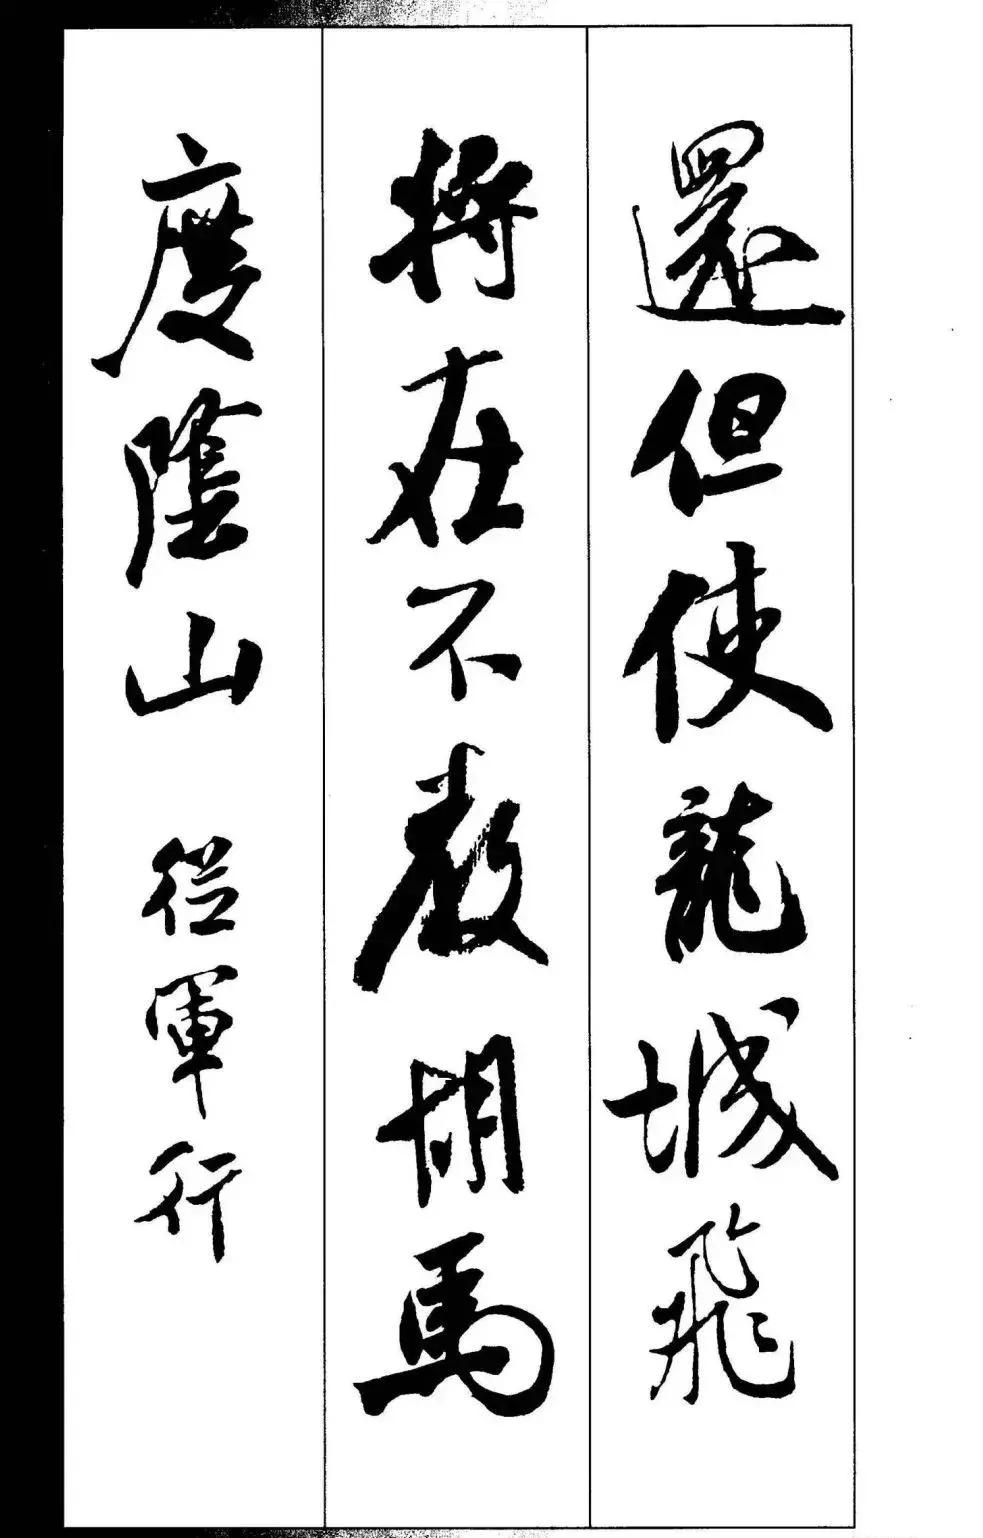 還但使龍城飛
將在不教胡馬
度陰山 從軍行